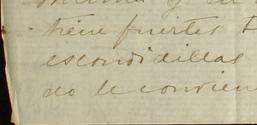 y en
tiene fuertes
escondidillas
do le convien